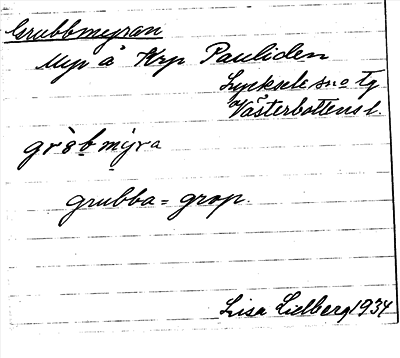 Grubbmyran
Myr å Krp Pauliden
Lycksele sn o Tg
Västerbottens l.
gròbmýra
grubba = grop.
Lisa Lidberg 1934